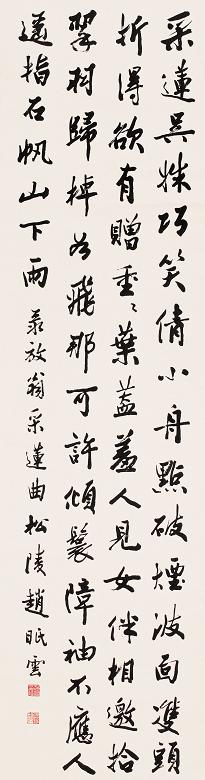 采蓮吳姝巧笑倩小舟點破煙波面雙頭
折得欲有贈重〻葉蓋羞人見女伴相邀拾
翠羽歸棹如飛那可許傾鬟障袖不應人
遙指石帆山下雨 录放翁采蓮曲松陵趙眠雲